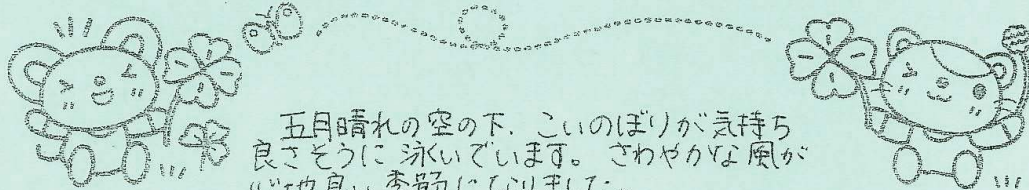 五月晴れの空の下、こいのぼりが気持ち
良さそうに泳いでいます。さわやかな風が
心地良い季節になりました。